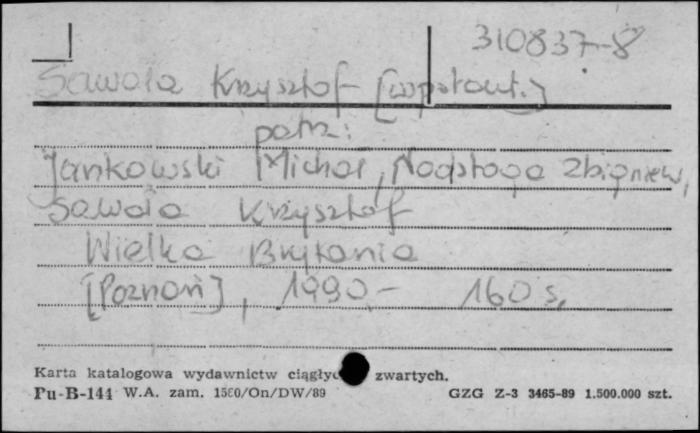 310837-8
Sawala Krzysztof [współaut.]
patrz:
Jankowski Michał, Nadstoga Zbigniew,
Sawala Krzysztof
Wielka Brytania
[Poznań], 1990.- 160 s.
Karta katalogowa wydawnictw ciągłyc zwartych.
Pu-B-144 W.A. zam. 1560/On/DW/89 GZG Z-3 3465-89 1.500.000 szt.